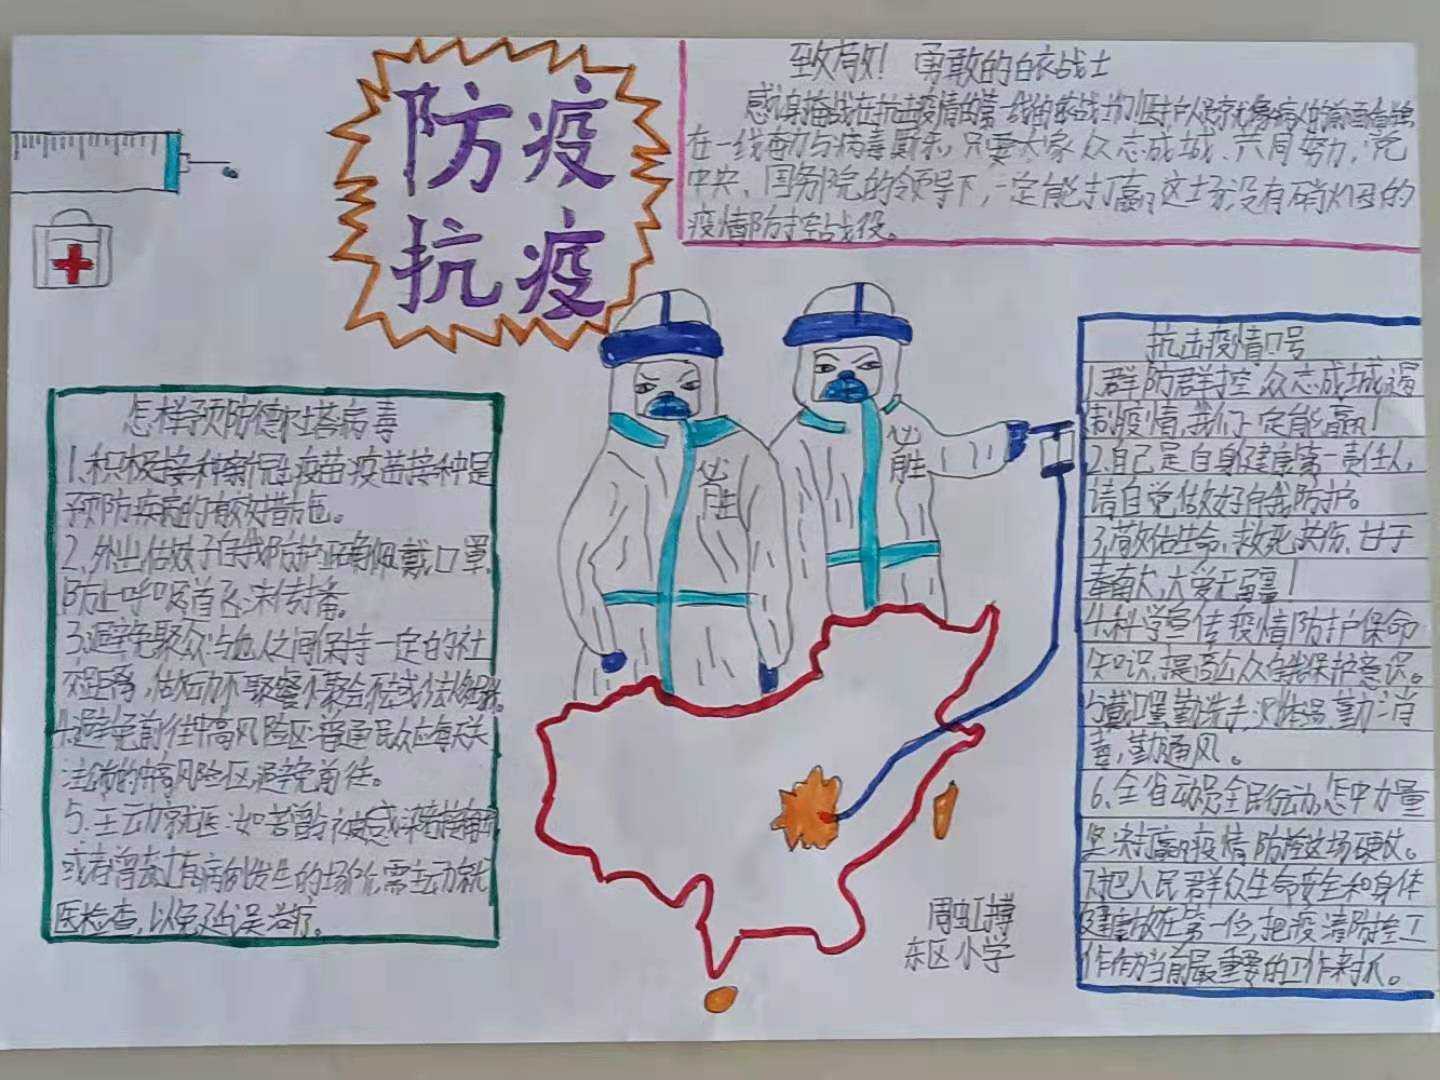 防疫
抗疫
致敬！勇敢的白衣战士
在一线奋力与病毒厮杀，只要大家众志成城、共同努力，党
中央、国务院的领导下，一定能打赢这场没有硝烟的
疫情防控战役。
怎样预防德尔塔病毒
1、积极接种新冠疫苗：疫苗接种是
预防疾病的有效措施。
2、外出做好自我防护：正确佩戴口罩，
防止呼吸道飞沫传播。
3、避免聚众：与他人之间保持一定的社
4、避免前往中高风险区：普通民众应每天关
避免前往。
5、主动就医：如若曾
或者曾去过有病例发生的场所，需主动就
医检查，以免延误治疗。
必胜
必胜
抗击疫情口号
1、群防群控 众志成城遏
制疫情，我们一定能赢！
2、自己是自身健康第一责任人，
请自觉做好自我防护。
救死扶伤、甘于
大爱无疆！
4、科学宣传疫情防护保命
知识，提高公众自我保护意识。
5、戴口罩勤洗手，测体温、勤消
毒，勤通风。
6、全省动员全民行动，
坚决打赢疫情防控这场硬仗。
7、把人民群众生命安全和身体
健康放在第一位，把疫情防控工
作作为当前最重要的工作来抓。
周虹博
东区小学